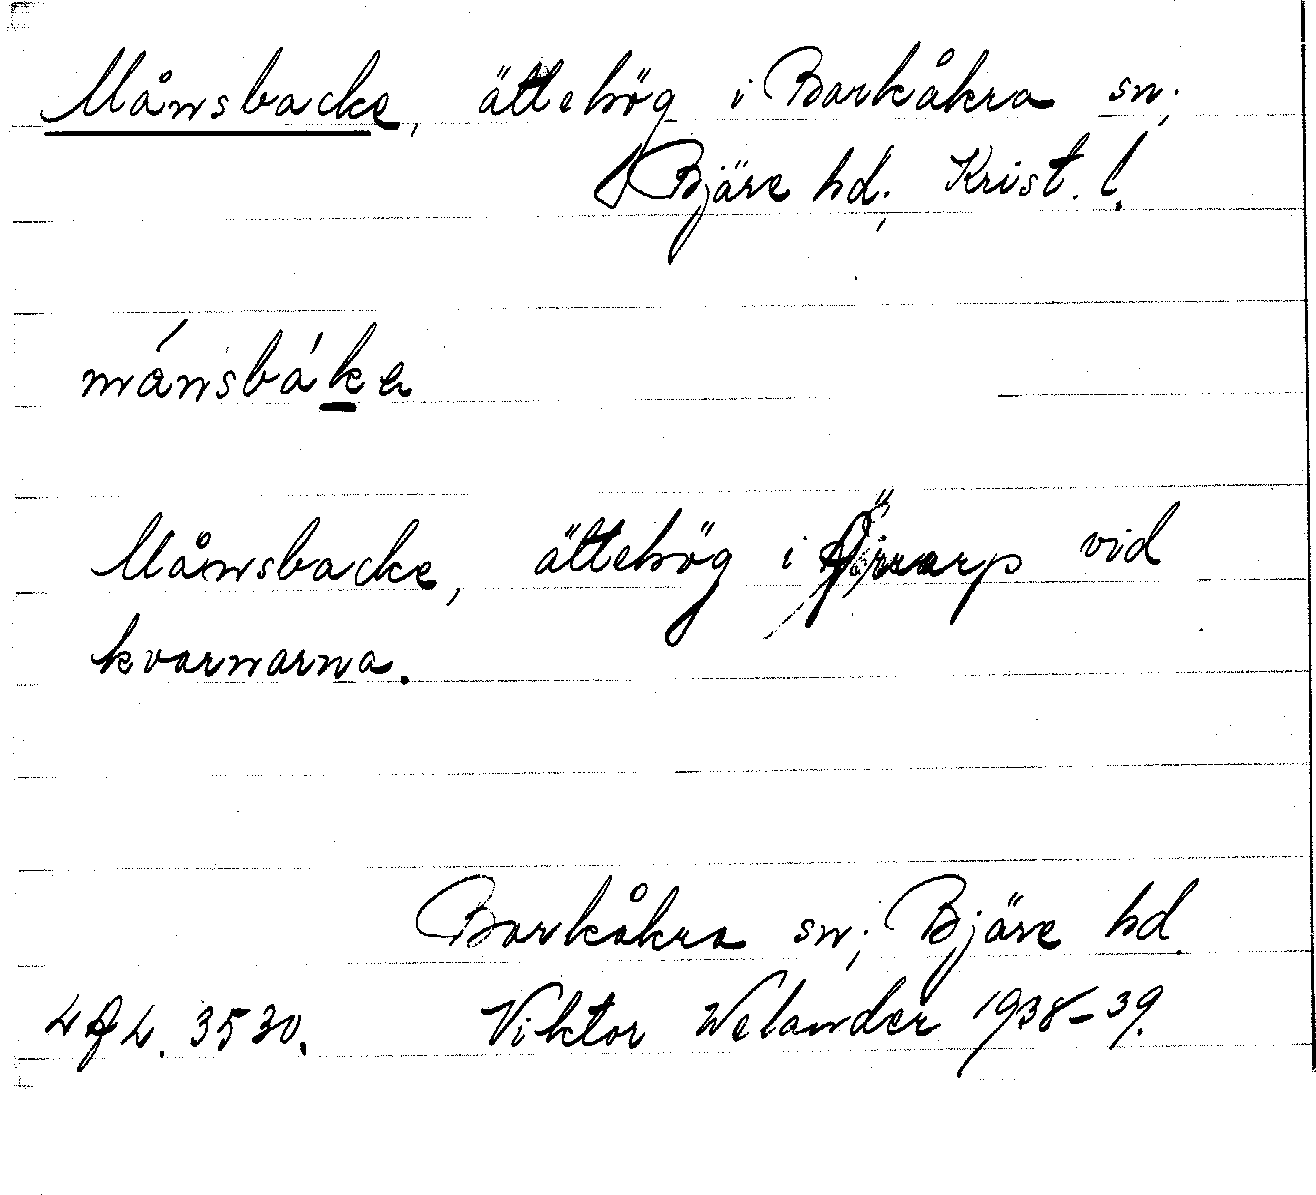 Månsbacke, ättehög i Barkåkra sn;
Bjäre hd; Krist. l.
mánsbákɐ
Månsbacke, ättehög i Örrarp vid
kvarnarna.
Barkåkra sn; Bjäre hd.
LAL. 3530. Viktor Welander 1938-39.